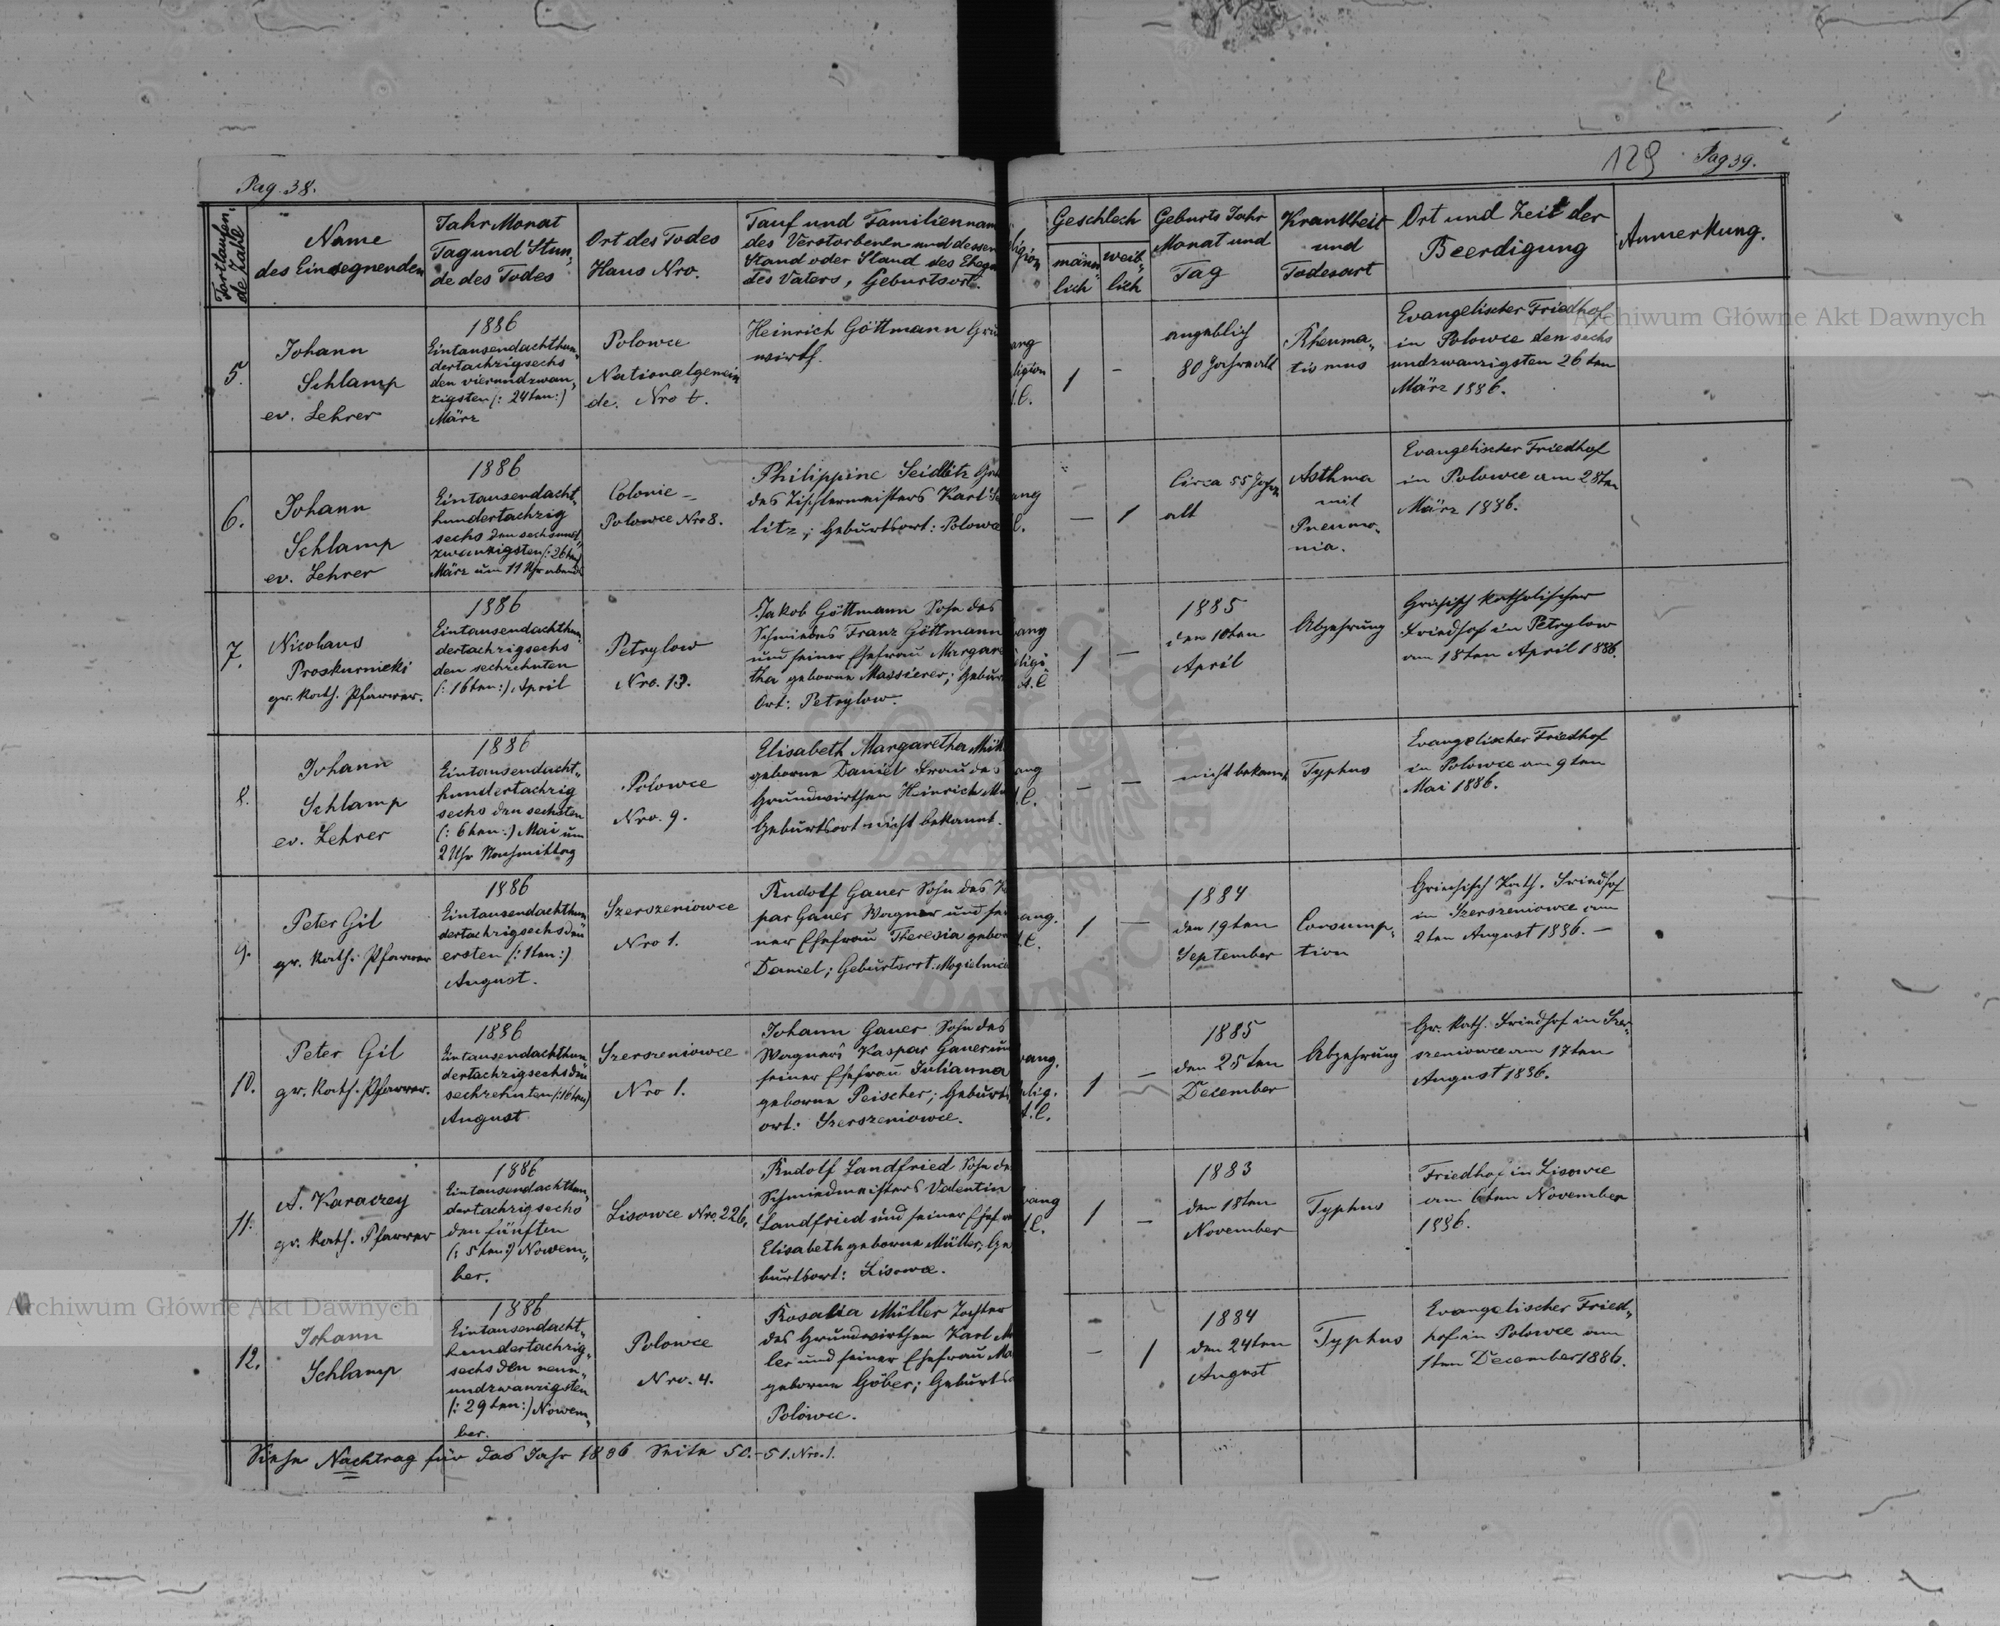 Pag. 38.
129 Pag 39.
Fortlaufen-
de Zahl
Name
des Einsegnenden
Jahr Monat
Tag und Stun-
de des Todes
Ort des Todes
Haus Nro.
Tauf und Familiennam
des Verstorbenen und dessen
Stand oder Stand des Ehega
des Vaters, Geburtsort.
ligion
Geschlech
männ-
lich
weib-
lich
Geburts Jahr
Monat und
Tag
Krankheit
und
Todesart
Ort und Zeit der
Beerdigung
Anmerkung.
5.
Johann
Schlamp
ev. Lehrer
1886
Eintausendachthun-
dertachzigsechs
den vierundzwan-
zigsten (: 24ten :)
März
Polowce
Nationalgemein
de. Nro 6.
Heinrich Göttmann Gru
wirth.
ang
ligion
.C.
1
-
angeblich
80 Jahre alt
Rheuma-
tismus
Evangelischer Friedhof
in Polowce den sechs
undzwanzigsten 26ten
März 1886.
6.
Johann
Schlamp
ev. Lehrer
1886
Eintausendacht-
hundertachzig
sechs den sechsund-
zwanzigsten (: 26ten)
März um 11 Uhr abends
Colonie -
Polowce Nro 8.
Philippine Seidlitz
des Tischlermeisters Karl Se
litz; Geburtsort: Polowce
ang
C.
-
1
Circa 55 Jahre
alt
Asthma
mit
Pneumo-
nia.
Evangelischer Friedhof
in Polowce am 28ten
März 1886.
7.
Nicolaus
Proskurnicki
gr. kath. Pfarrer.
1886
Eintausendachthun-
dertachzigsechs
den sechzehnten
(: 16ten :) April
Petrylow
Nro. 13.
Jakob Göttmann Sohn des
Schmiedes Franz Göttmann
und seiner Ehefrau Margare
tha geborne Massierer; Gebur
Ort: Petrylow.
vang
ligi
A.C
1
-
1885
den 10ten
April
Abzehrung
Griechisch katholischer
Friedhof in Petrylow
am 18ten April 1886.
8.
Johann
Schlamp
ev. Lehrer
1886
Eintausendacht-
hundertachzig
sechs den sechsten
(: 6ten :) Mai um
2 Uhr Nachmittag
Polowce
Nro. 9.
Elisabeth Margaretha
geborne Daniel Frau des
Grundwirthen Heinrich
Geburtsort nicht bekannt.
ang
.C.
-
-
nicht bekannt
Typhus
Evangelischer Friedhof
in Polowce am 9ten
Mai 1886.
9.
Peter Gil
gr. kath. Pfarrer
1886
Eintausendachthun
dertachzigsechs den
ersten (: 1ten :)
August.
Szerszeniowce
Nro 1.
Rudolf Gauer Sohn des K
par Gauer Wagner und sei
ner Ehefrau Theresia gebor
Daniel; Geburtsort: Mogielnice
ang.
.C.
1
-
1884
den 19ten
September
Consump-
tion
Griechisch Kath. Friedhof
in Szerszeniowce am
2ten August 1886. -
10.
Peter Gil
gr. kath. Pfarrer.
1886
Eintausendachthun
dertachzigsechs den
sechzehnten (: 16ten)
August
Szerszeniowce
Nro 1.
Johann Gauer Sohn des
Wagners Kaspar Gauer und
seiner Ehefrau Julianna
geborne Peischer; Geburts
ort: Szerszeniowce.
vang.
elig.
A.C.
1
-
1885
den 25ten
December
Abzehrung
Gr. Kath. Friedhof in Szer-
szeniowce am 17ten
August 1886.
11.
A. Karaczey
gr. kath. Pfarrer
1886
Eintausendachthun-
dertachzigsechs
den fünften
(: 5ten :) Nowem-
ber.
Lisowce Nro. 226.
Rudolf Landfried Sohn de
Schmiedmeisters Valentin
Landfried und seiner Ehefra
Elisabeth geborne Müller; Ge
burtsort: Lisowce.
vang
.C.
1
-
1883
den 18ten
November
Typhus
Friedhof in Lisowce
am 6ten November
1886.
12.
Johann
Schlamp
1886
Eintausendacht-
hundertachzig-
sechs den neun-
undzwanzigsten
(: 29ten :) Nowem-
ber.
Polowce
Nro. 4.
Rosalia Müller Tochter
des Grundwirthen Karl M
ler und seiner Ehefrau Ma
geborne Göber; Geburts
Polowce.
-
1
1884
den 24ten
August
Typhus
Evangelischer Fried-
hof in Polowce am
1ten December 1886.
Siehe Nachtrag für das Jahr 1886 Seite 50.-51. Nro. 1.
Archiwum Główne Akt Dawnych
Archiwum Główne Akt Dawnych